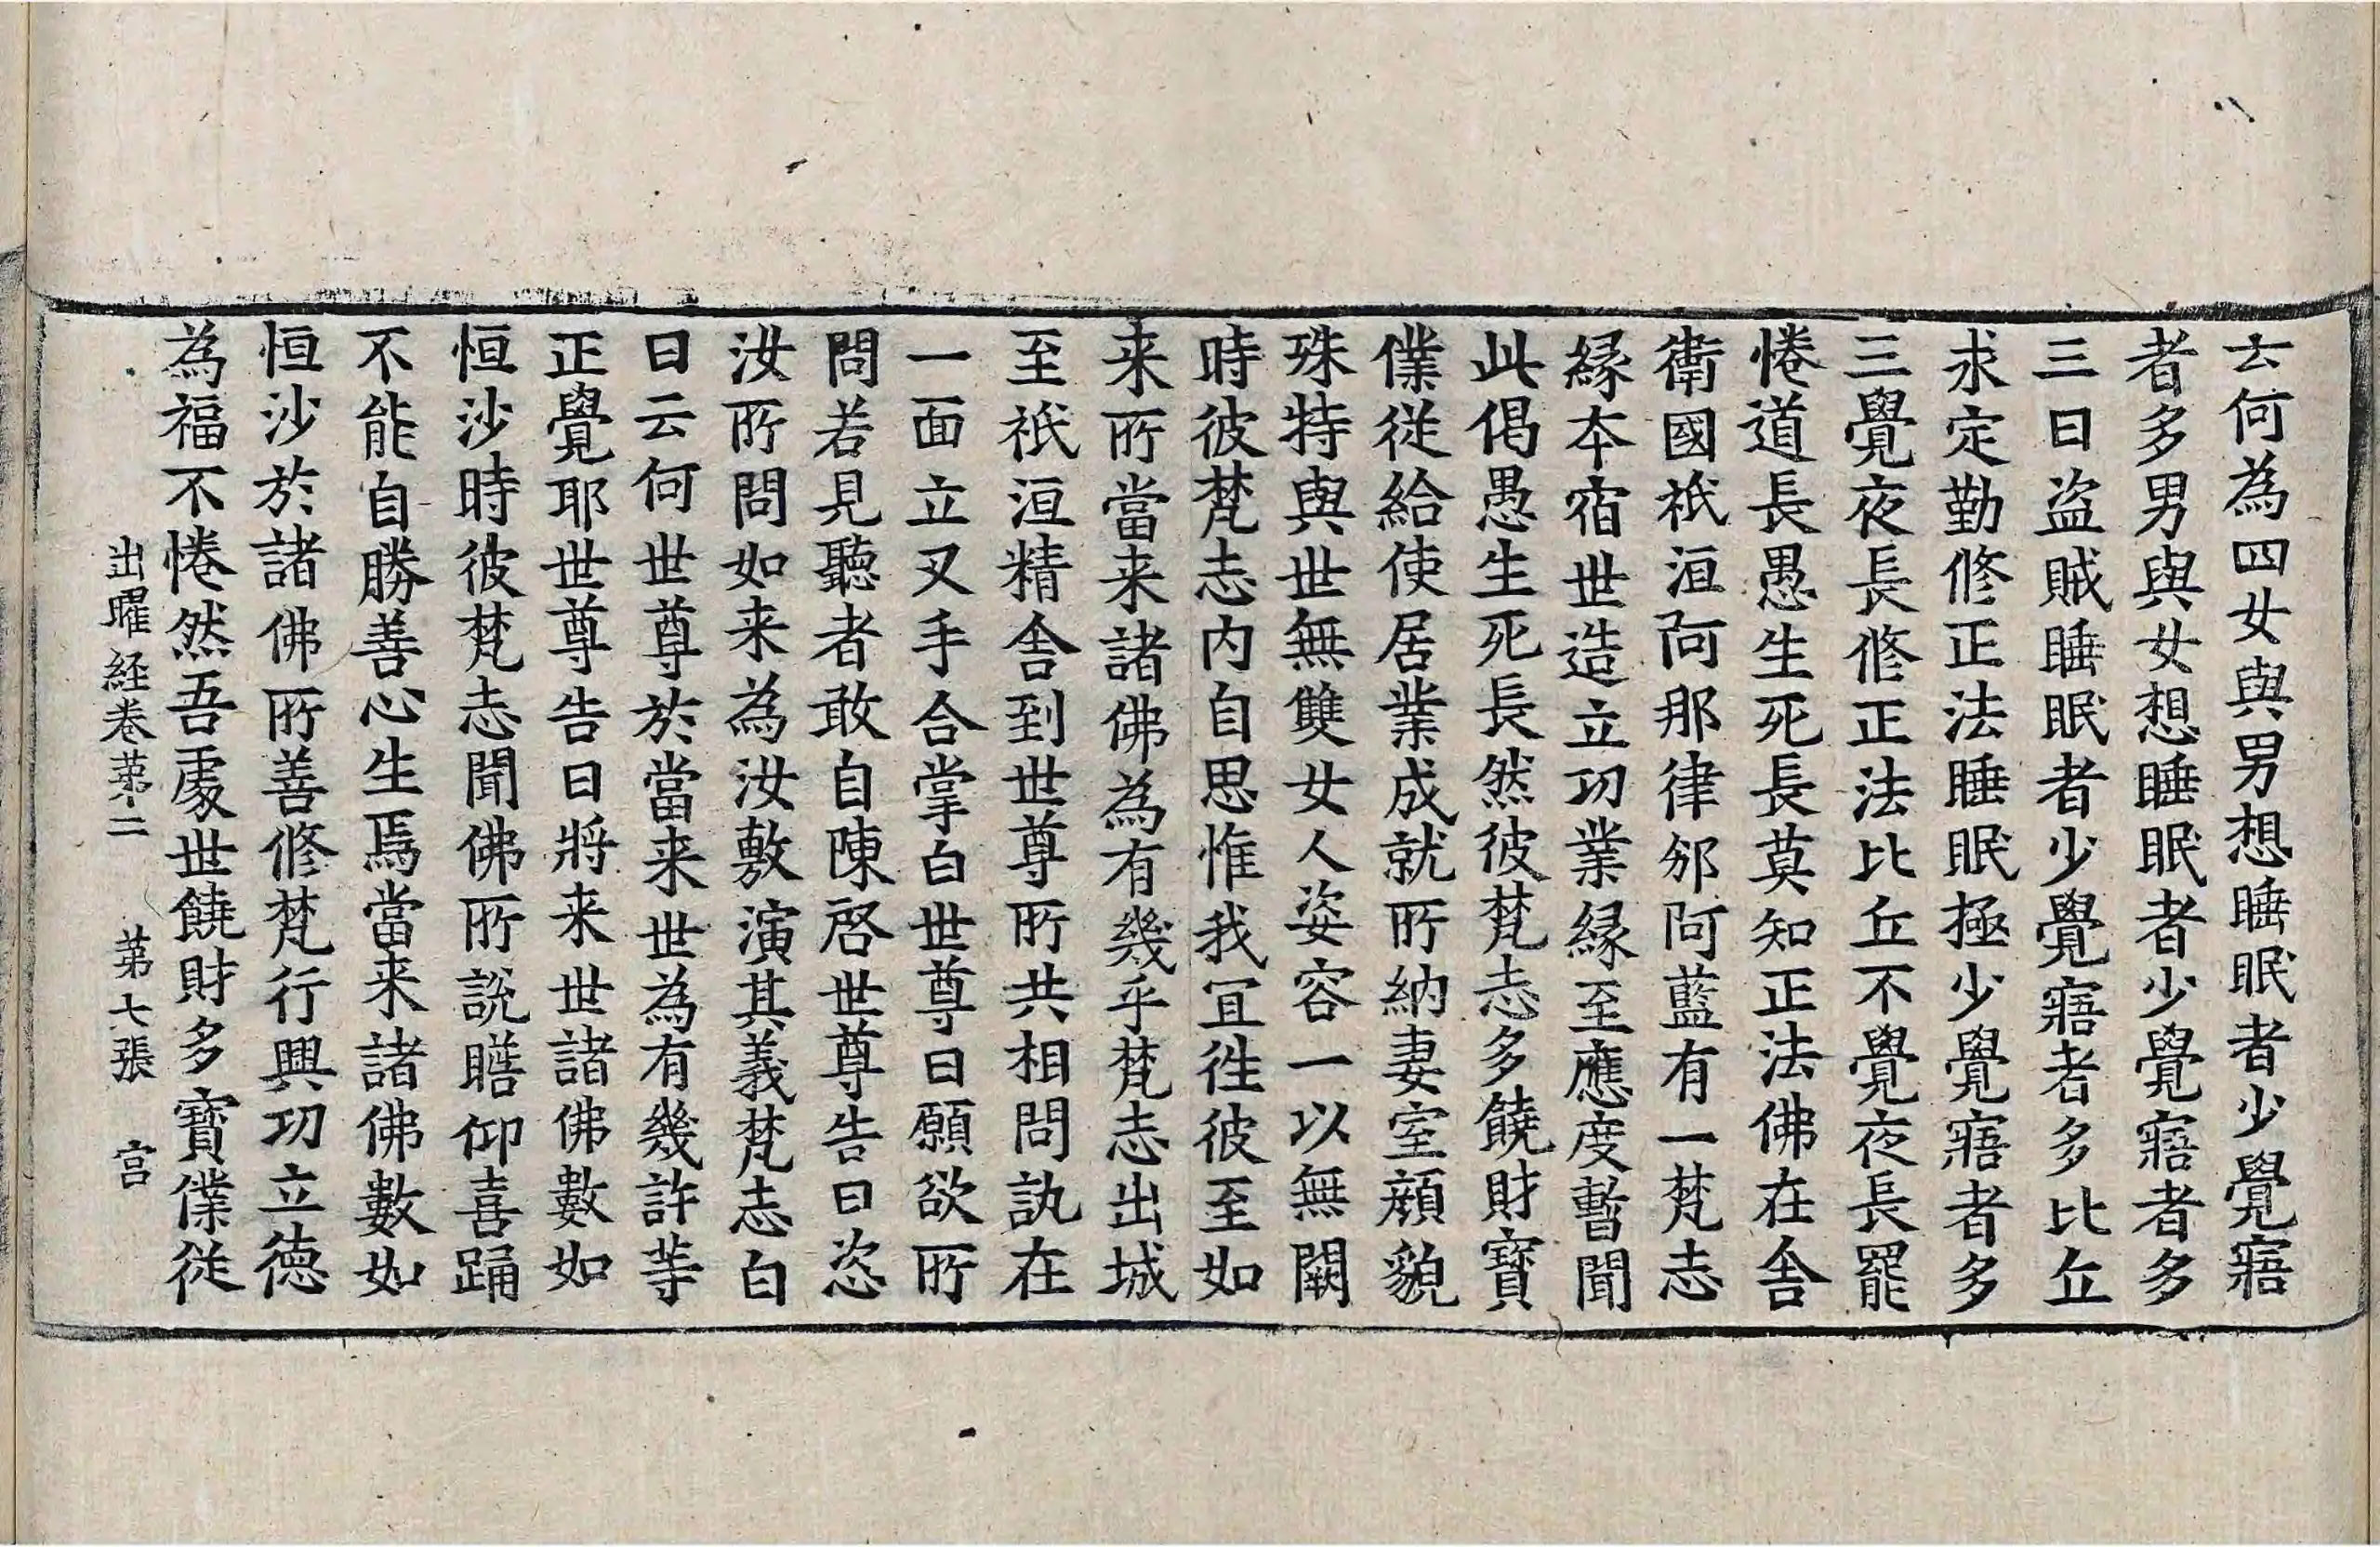 云何為四女與男想睡眠者少覺寤
者多男與女想睡眠者少覺寤者多
三曰盜賊睡眠者少覺寤者多比丘
求定勤修正法睡眠極少覺寤者多
三覺夜長修正法比丘不覺夜長罷
惓道長愚生死長莫知正法佛在舍
衛國祇洹阿那律邠阿藍有一梵志
緣本宿世造立功業緣至應度暫聞
此偈愚生死長然彼梵志多饒財寶
僕從給使居業成就所納妻室顏貌
殊特與世無雙女人姿容一以無闕
時彼梵志內自思惟我宜往彼至如
来所當来諸佛為有幾乎梵志出城
至祇洹精舍到世尊所共相問訊在
一面立叉手合掌白世尊曰願欲所
問若見聽者敢自陳啓世尊告曰恣
汝所問如来為汝敷演其義梵志白
曰云何世尊於當来世為有幾許等
正覺耶世尊告曰將来世諸佛數如
恒沙時彼梵志聞佛所說瞻仰喜踊
不能自勝善心生焉當来諸佛數如
恒沙於諸佛所善修梵行興功立德
為福不惓然吾處世饒財多寶僕從
出曜経卷苐二 苐七張 宮